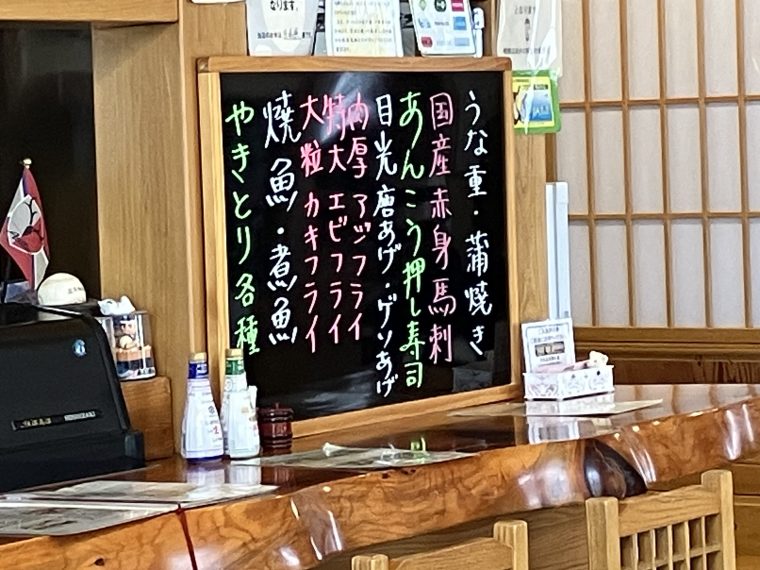 うな重・蒲焼き
国産赤身馬刺
あんこう押し寿司
目光唐あげ・ゲソあげ
肉厚 アジフライ
特大 エビフライ
大粒 カキフライ
焼魚・煮魚
やきとり各種
なります。
HOSHIZAKI